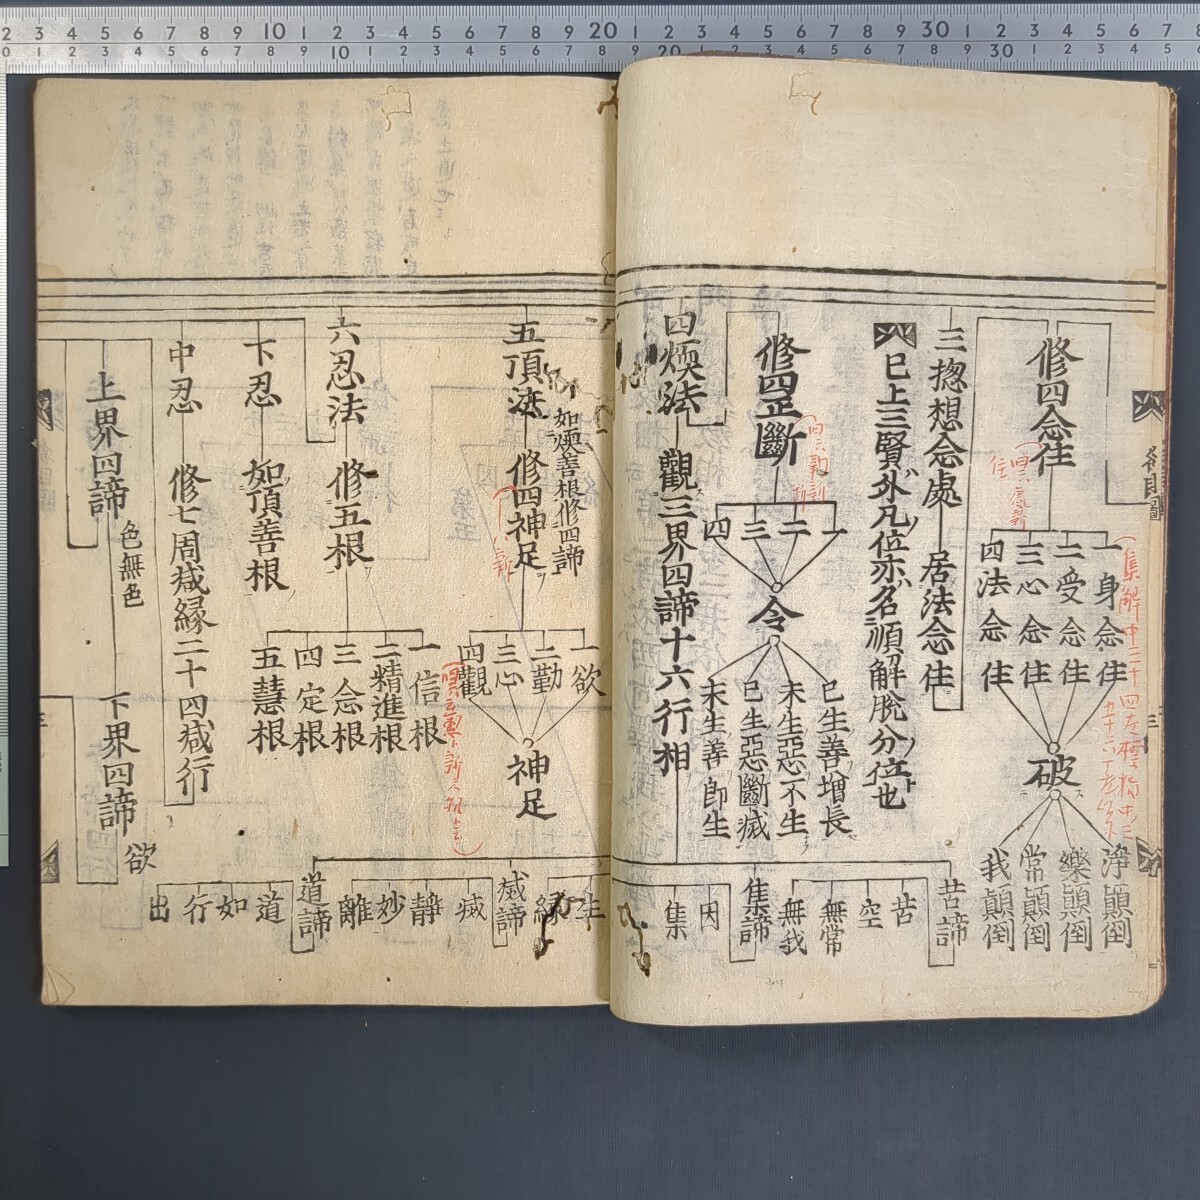 修四念住
一身念住
二受念住
三心念住
四法念住
破
淨顚倒
樂顚倒
常顚倒
我顚倒
三揔想念處
居法念住
已上三賢外凡位亦名順解脫分位也
修四正斷
一
二
三
四
令
已生善增長
未生惡不生
已生惡斷滅
未生善即生
四煗法
觀三界四諦十六行相
苦諦
苦
空
無常
無我
集諦
因
集
生
緣
五頂法
如煗善根修四諦
修四神足
一欲
二勤
三心
四觀
神足
滅諦
滅
靜
妙
離
六忍法
修五根
一信根
二精進根
三念根
四定根
五慧根
道諦
道
如
行
出
下忍
如頂善根
中忍
修七周減縁二十四減行
上界四諦
色無色
下界四諦
欲